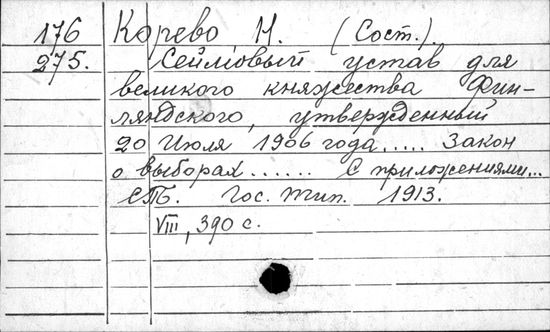 176 Корево Н. (Сост.).
275. Сеймовый устав для
великого княжества Фин-
ляндского, утвержденный
20 Июля 1906 года..... Закон
о выборах...... С приложениями...
СПб. Гос. тип. 1913.
VIII, 390 с.